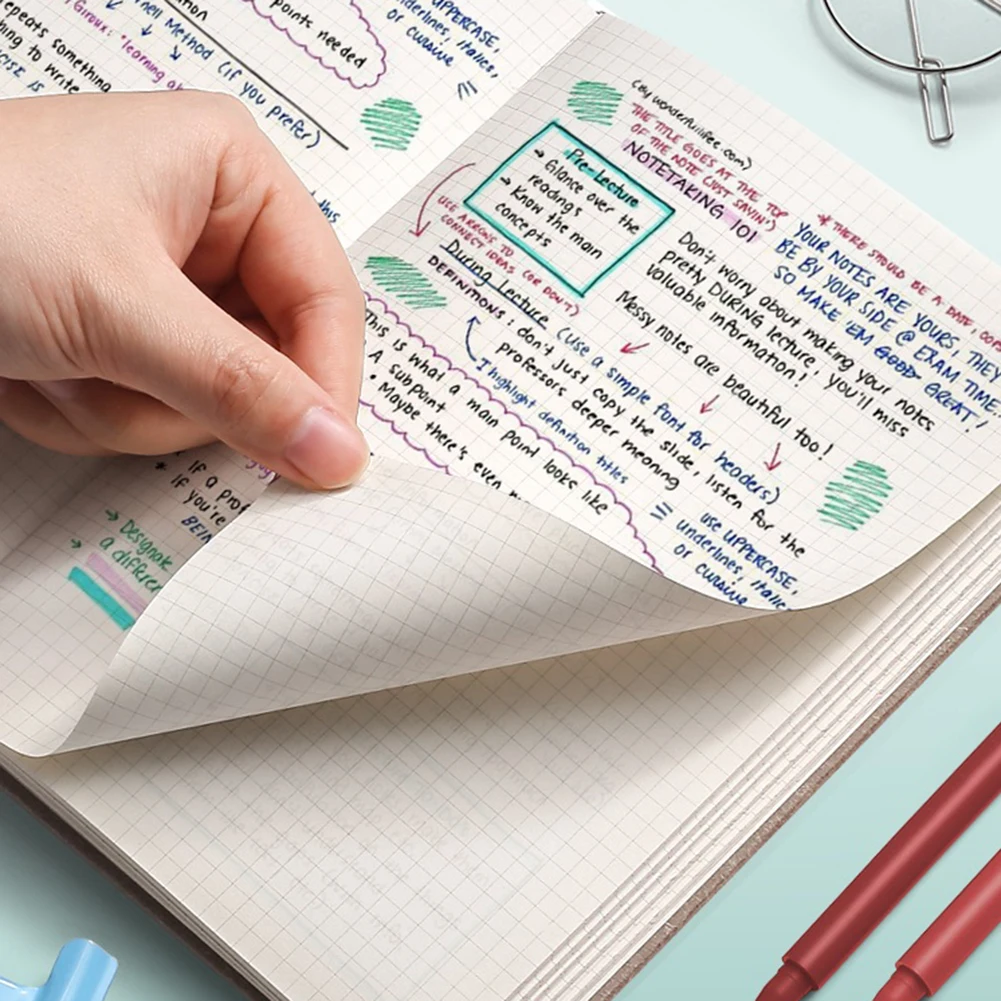 points needed
UPPERCASE,
underlines, italics,
or cursive
Method (if you prefer)
Giroux: "learning
repeats something
to write
this
(by wonderfullifee.com)
THE TITLE GOES AT THE TOP
OF THE NOTE (JUST SAYIN')
NOTETAKING 101
* THERE SHOULD BE A DATE,
YOUR NOTES ARE YOURS, THEY
BE BY YOUR SIDE @ EXAM TIME,
SO MAKE 'EM GOOD GREAT!
Pre-Lecture
→ Glance over the
readings
→ Know the main
concepts
Don't worry about making your notes
pretty DURING lecture, you'll miss
valuable information!
Messy notes are beautiful too!
USE ARROWS TO
CONNECT IDEAS (OR DON'T)
During Lecture (use a simple font for headers)
DEFINITIONS: don't just copy the slide, listen for the
professors deeper meaning
I highlight definition titles
use UPPERCASE,
underlines, italic
or cursive
This is what a main point looks like
A subpoint
• Maybe there's even
* If a prof
If you're
BEIN
→ Designate
→ a differen